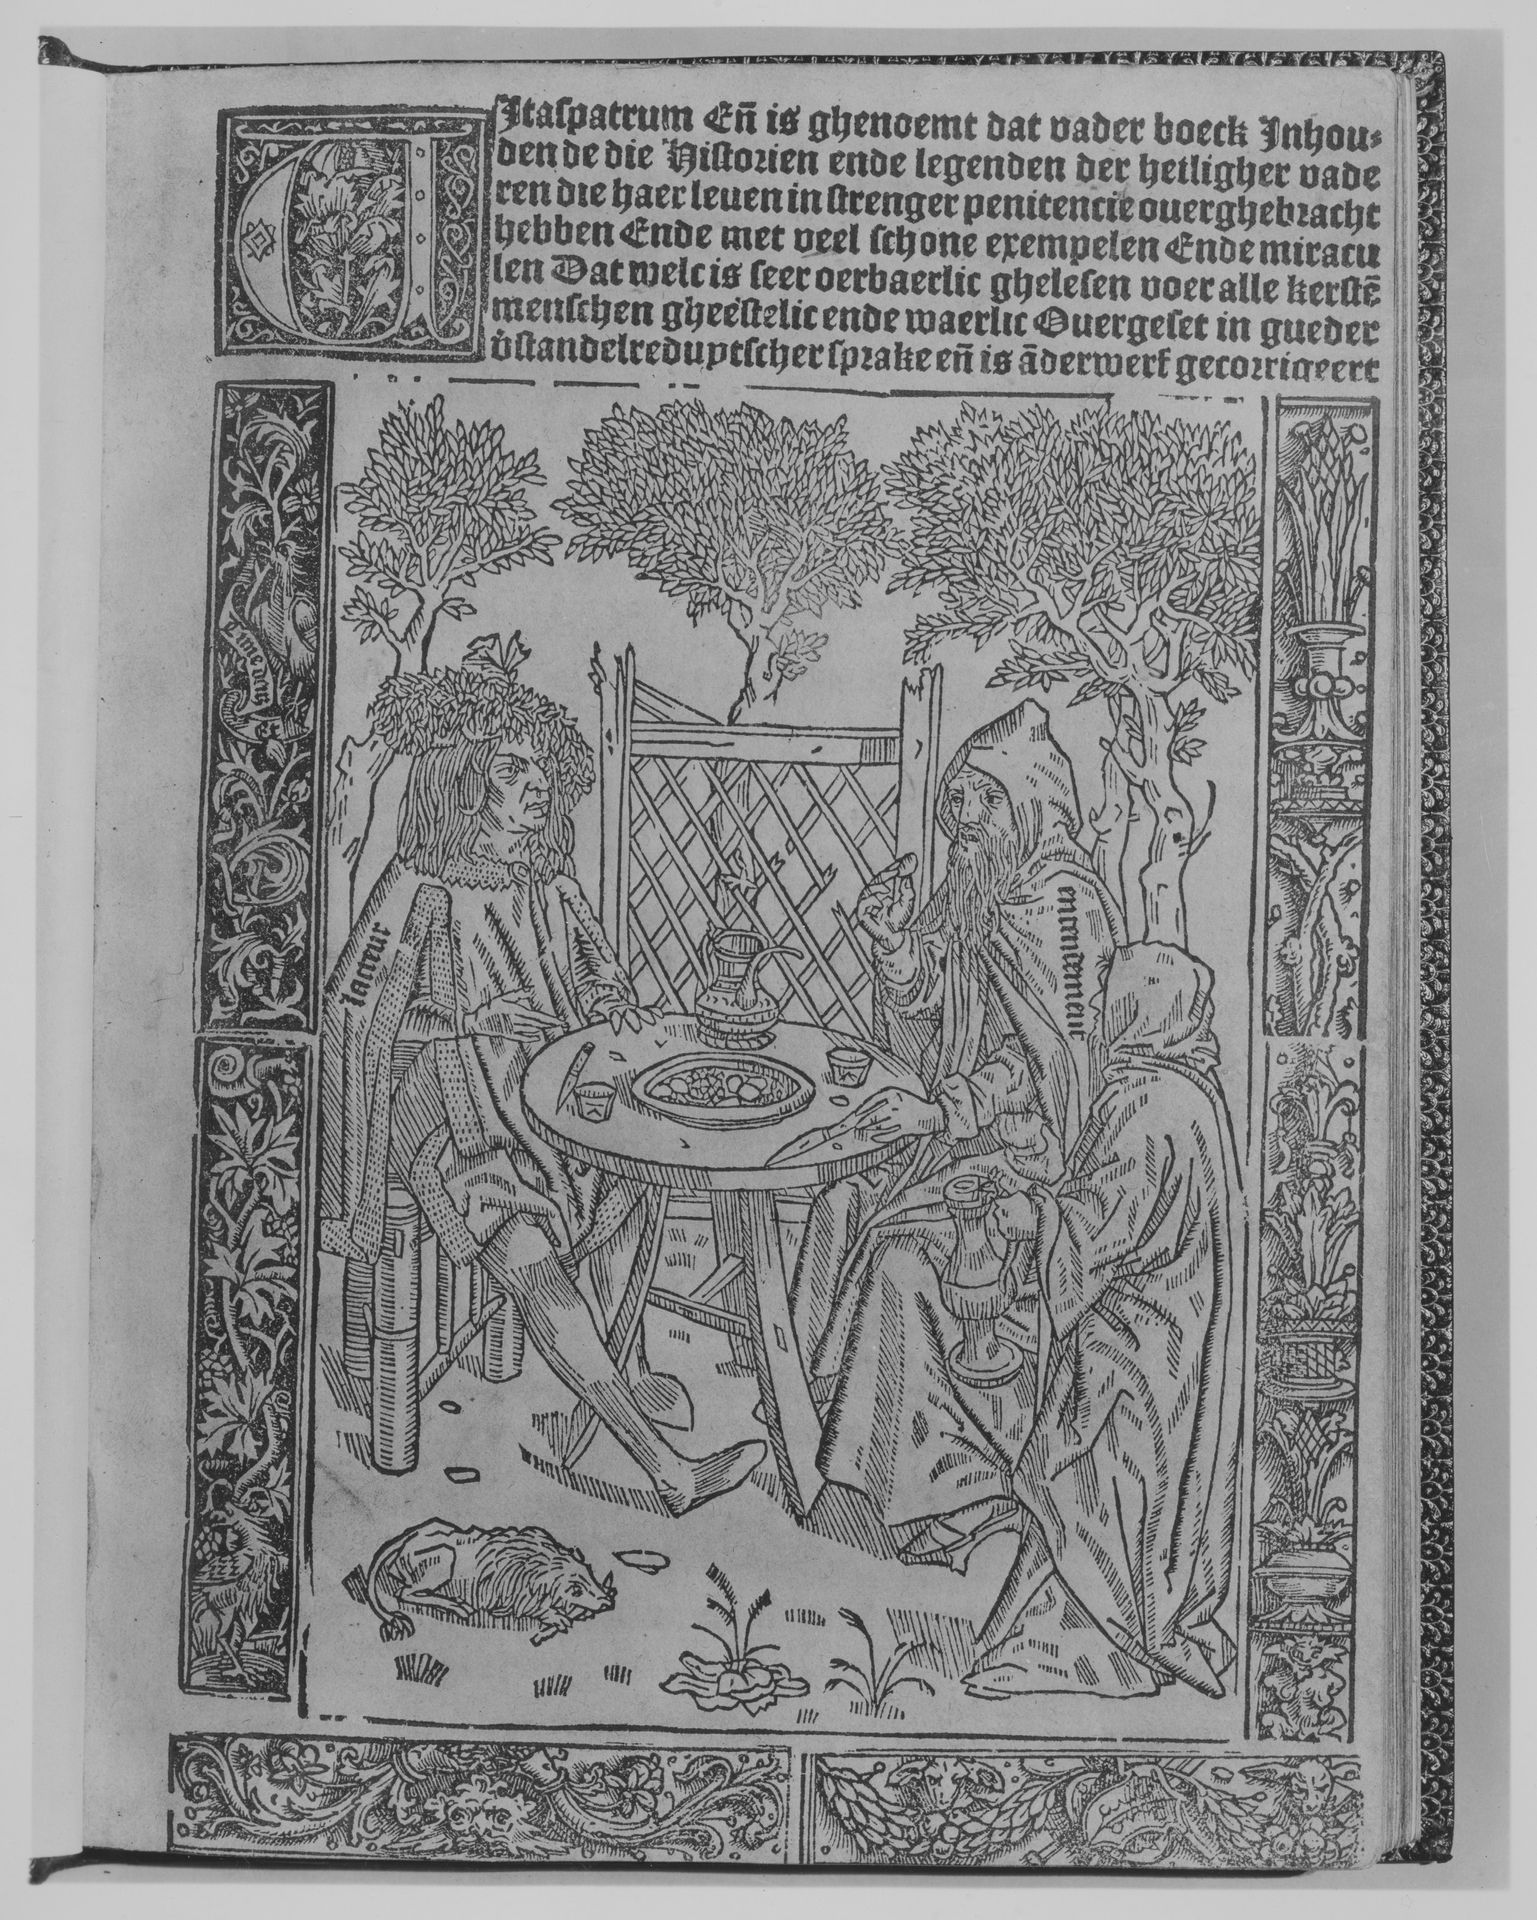 Vitaspatrum Eñ is ghenoemt dat vader boeck Inhou⸗
den de die Historien ende legenden der heiligher vade
ren die haer leuen in strenger penitencie ouerghebracht
hebben Ende met veel schone exempelen Ende miracu
len Dat welc is seer oerbaerlic ghelesen voer alle kerstē
menschen gheestelic ende waerlic Ouergeset in gueder
v̄standelre duytscher sprake eñ is āderwerf gecorrigeert
lacteur
entendemēt